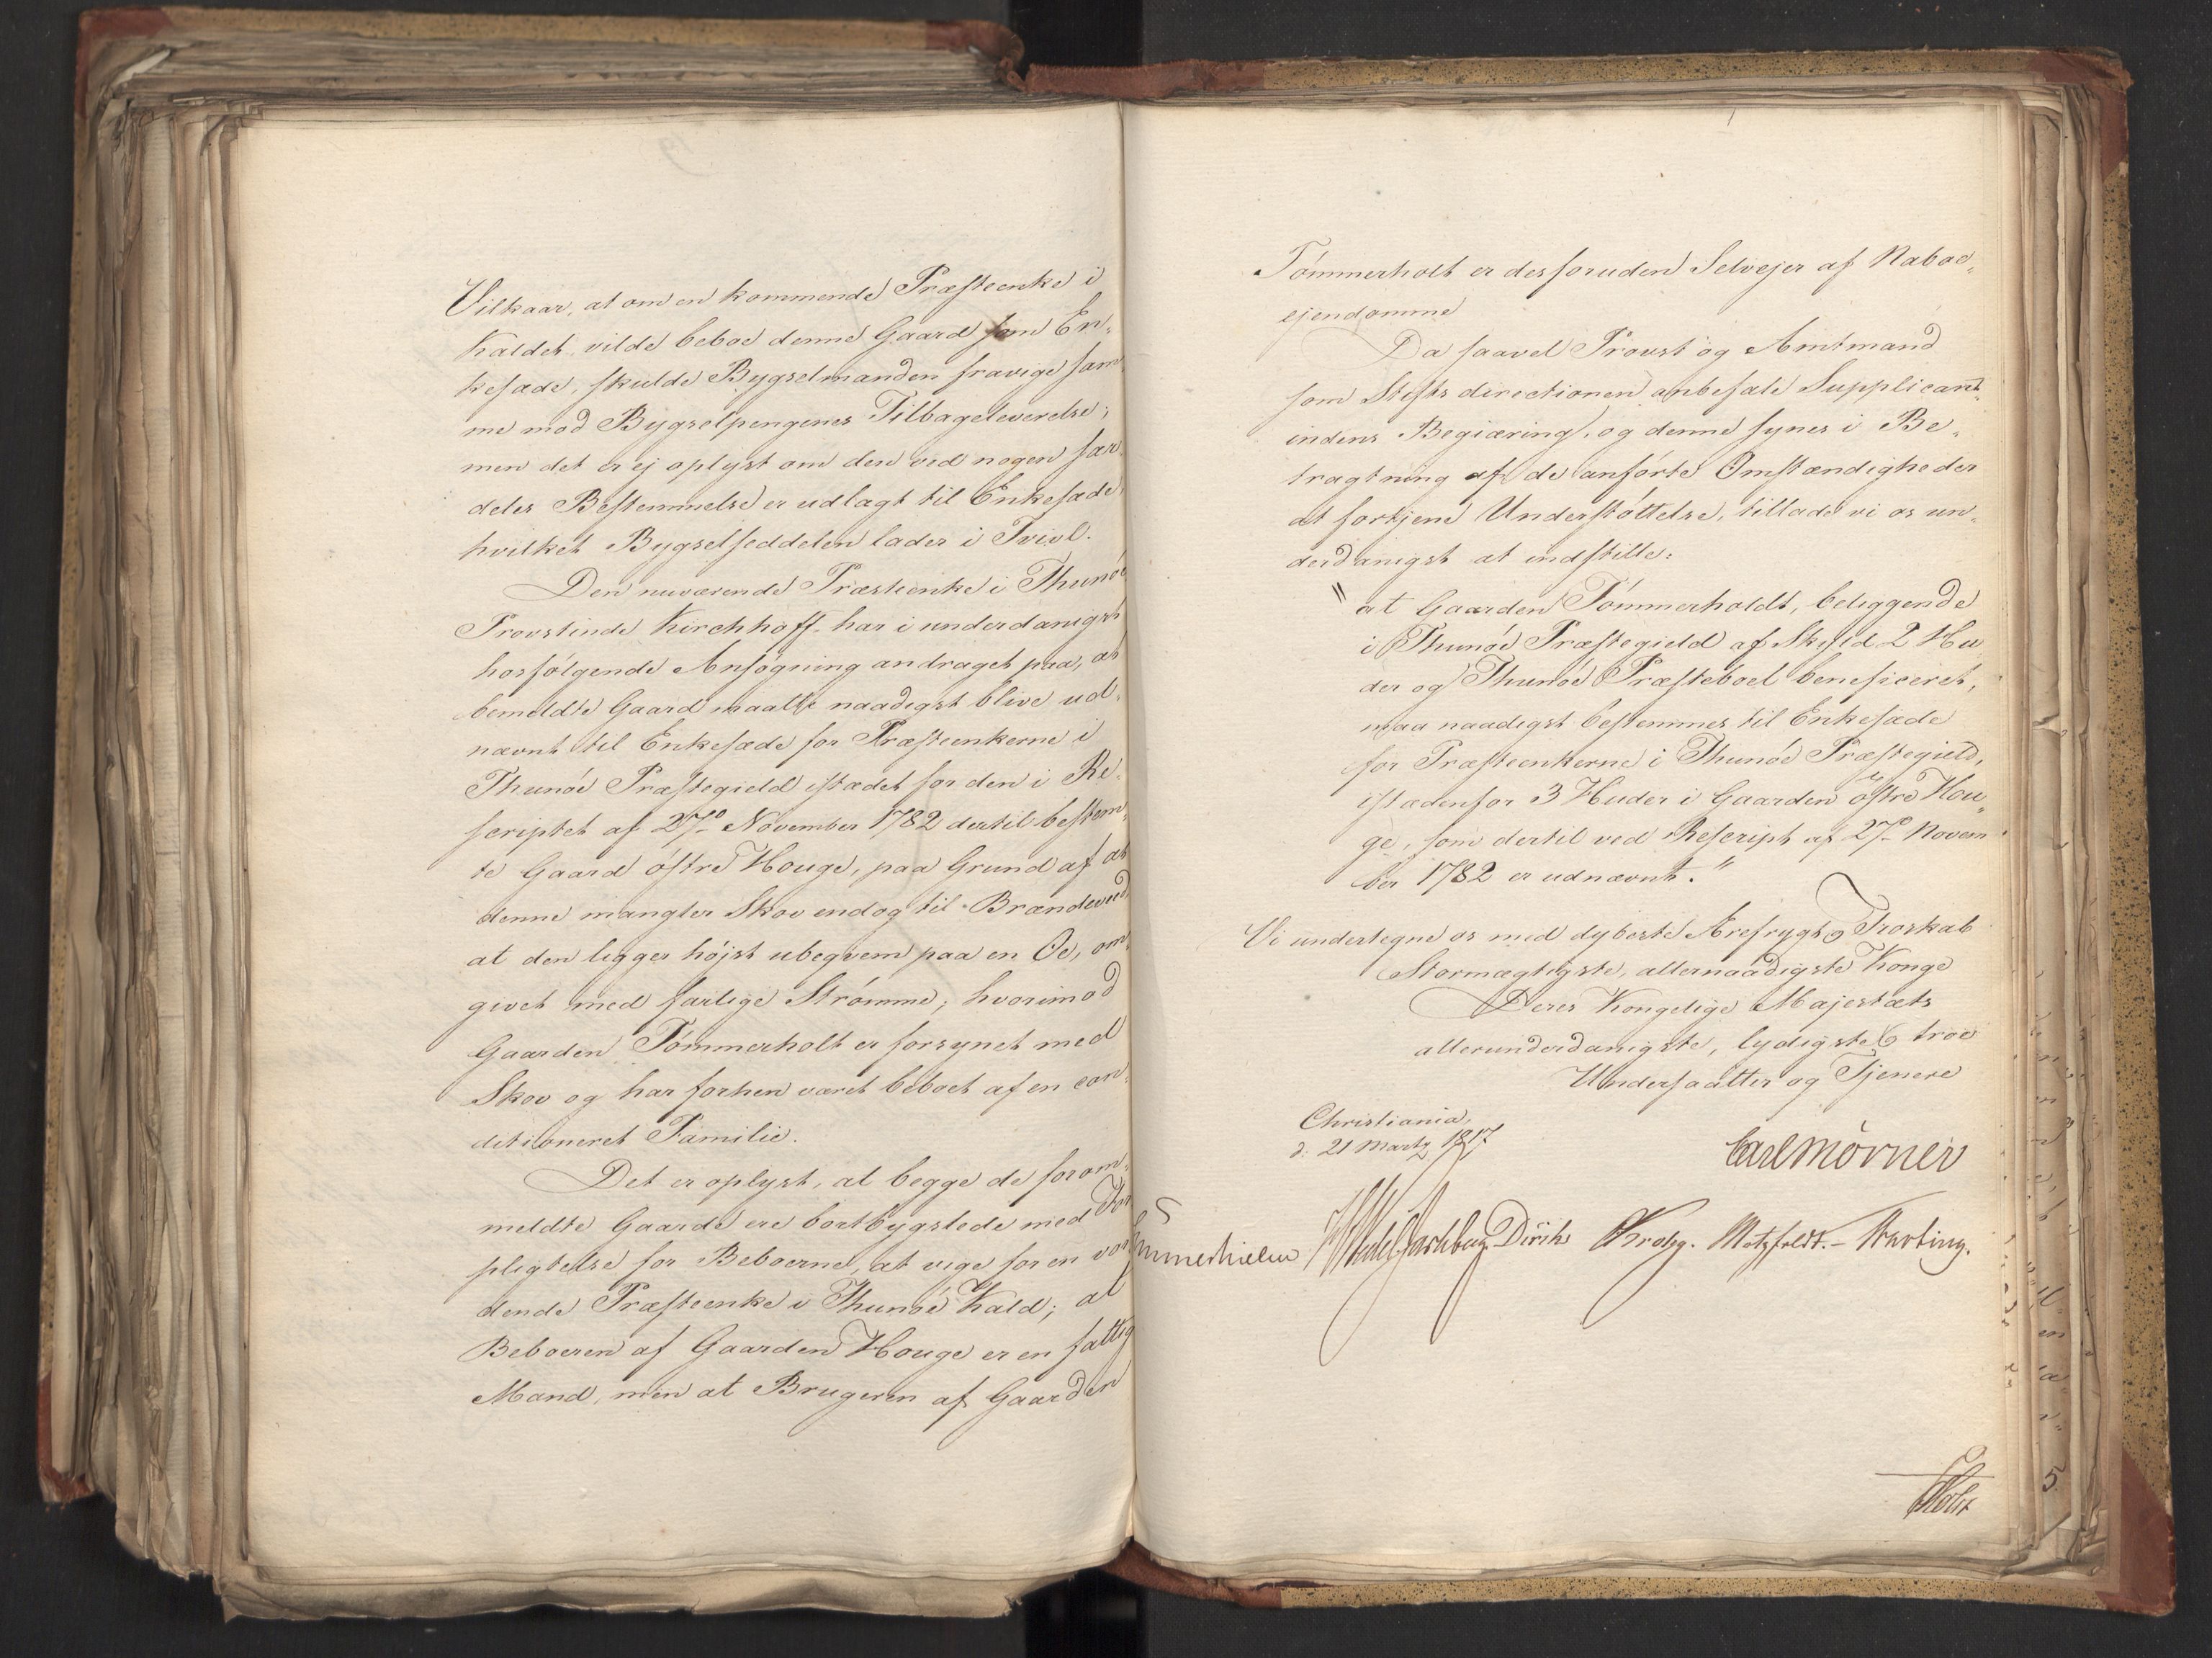 Vilkaar, at om en kommende Præsteenke i
Kaldet, vilde beboe denne Gaard som En-
kesæde, skulde Bygselmanden fravige sam-
me mod Bygselpengenes Tilbageleverelse;
men det er ej oplyst om den ved nogen sær-
deles Bestemmelse er udlagt til Enkesæde,
hvilket Bygselseddelen lader i Tvivl.
Den nuværende Præsteenke i Thunöe
Provstinde Kirchhoff har i underdanigst
hosfölgende Ansögning andraget paa, at
bemeldte Gaard maatte naadigst blive ud-
nævnt til Enkesæde for Præsteenkerne i
Thunöe Præstegield istædet for den i Re-
scriptet af 27de November 1782 dertil bestem-
te Gaard östre Houge, paa Grund af at
denne mangler Skov endog til Brændeved,
at den ligger höjst ubeqvem paa en Oe, om-
givet med farlige Strömme; hvorimod
Gaarden Tömmerholt er forsynet med
Skov og har forhen været beboet af en con-
ditioneret Familie.
Det er oplyst, at begge de forom-
meldte Gaarde ere bortbygslede med For-
pligtelse for Beboerne, at vige for en vor-
dende Præsteenke i Thunöe Kald; at
Beboeren af Gaarden Houge er en fattig
Mand, men at Brugeren af Gaarden
Tömmerholt er desforuden Selvejer af Naboe-
ejendomme
Da saavel Provst og Amtmand
som Stiftsdirectionen anbefale Supplicant-
indens Begiæring, og denne synes i Be-
tragtning af de anförte Omstændigheder
at fortjene Understöttelse, tillade vi os un-
derdanigst at indstille:
"at Gaarden Tömmerholdt, beliggende
i Thunöe Præstegield af Skyld 2 Hu-
der og Thunöe Præsteboel beneficeret,
maa naadigst bestemmes til Enkesæde
for Præsteenkerne i Thunöe Præstegield,
istædenfor 3 Huder i Gaarden östre Hou-
ge, som dertil ved Rescript af 27de Novem-
ber 1782 er udnævnt."
Vi undertegne os med dybeste Ærefrygt og Troskab
Stormægtigste, allernaadigste Konge
Deres Kongelige Majestæts
allerunderdanigste, lydigste & troe
Undersaatter og Tjenere
Christiania,
d. 21 Martz 1817
Carl Mörner
Sommerhielm Diriks Krohg. Motzfeldt. Hartung.
Holst